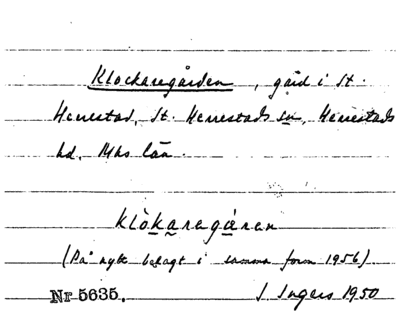 Klockaregården, gård i St.
Herrestad, St. Herrestads sn, Herrestads
hd. Mhs län.
klòkaregá̀ren
(På nytt belagt i samma form 1956)
Nr 5635. I Ingers 1950